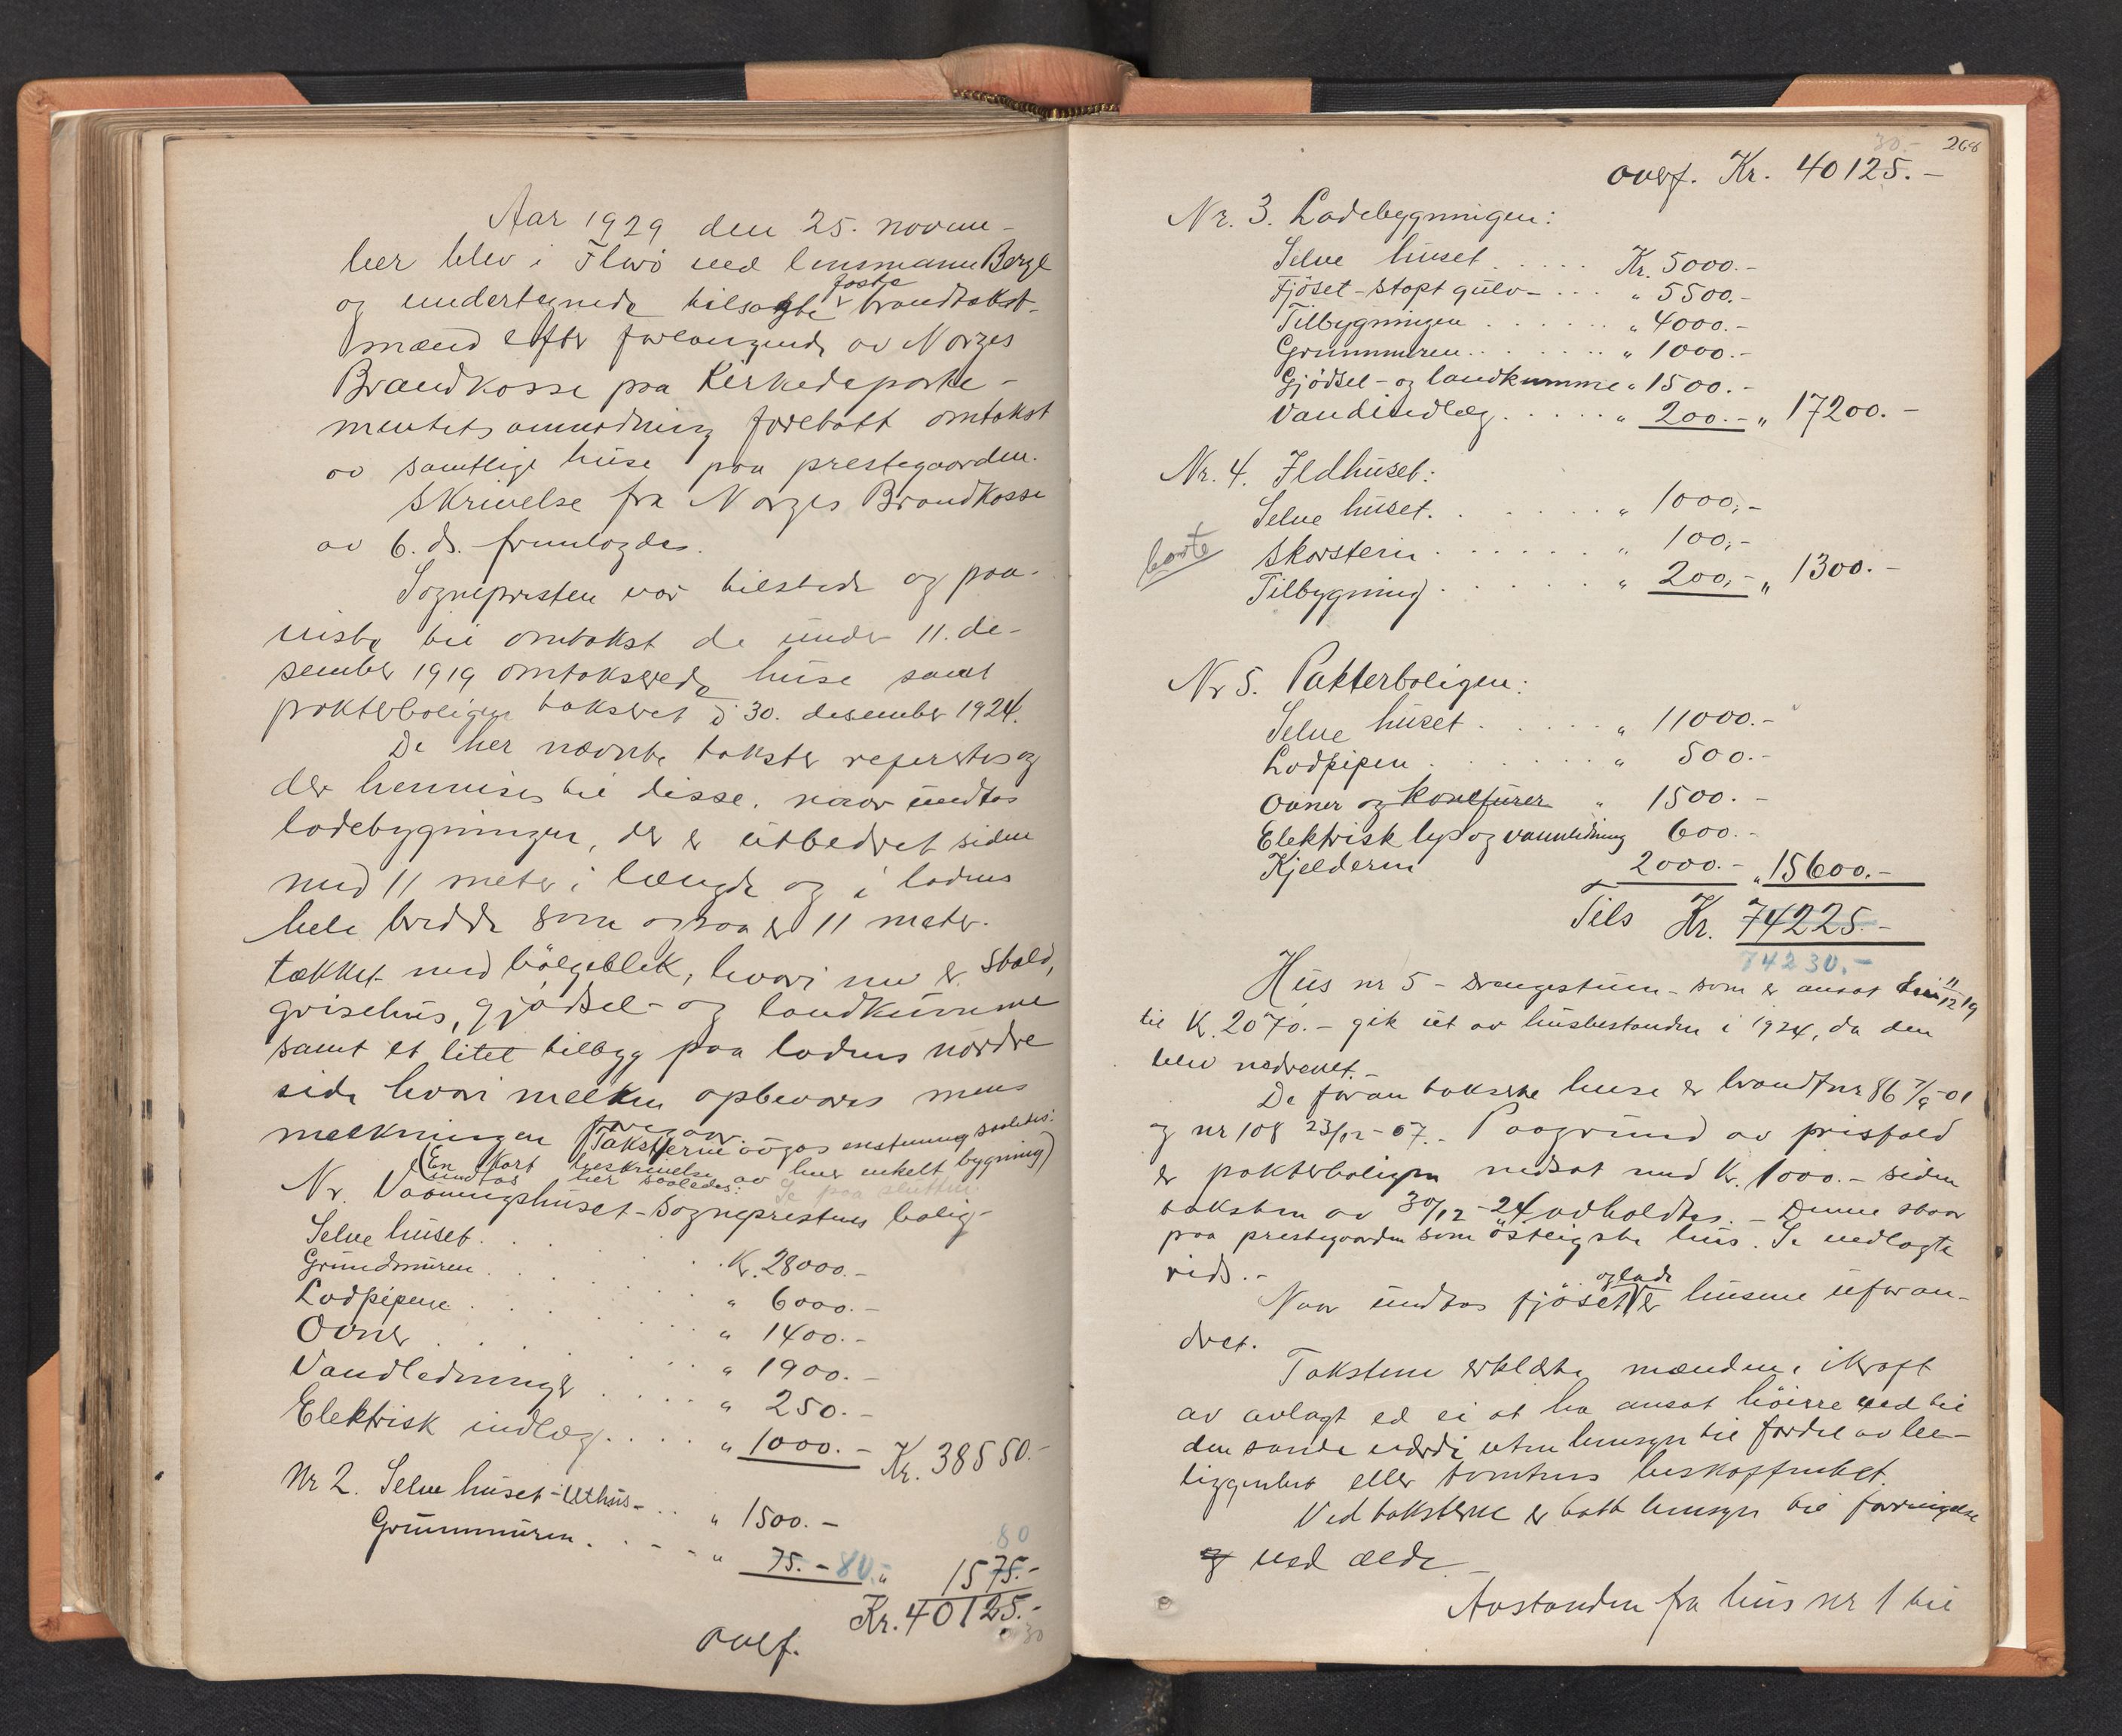 Aar 1929 den 25. novem-
ber blev i Flerö ved lensmann Berge
og undertegnede tilsagte faste brandtakst-
mænd efter forlangende av Norges
Brandkasse paa Kirkedeparte-
mentets anmodning foretatt omtakst
av samtlige huse paa prestegaarden.
Skrivelse fra Norges Brandkasse
av 6. ds. fremlagdes.
Sognepresten var tilstede og paa-
viste til omtakst de under 11. de-
sember 1919 omtakserede huse samt
pakterboligen taksert d 30. desember 1924.
De her nævnte takster refertes og
der henvises til disse. naar undtas
ladebygningen, der er utbedret siden
med 11 meter i længde og i ladens
hele bredde som ogsaa er 11 meter.
tækket med bölgeblek, hvori nu er stald,
grisehus, gjödsel- og landkumme
samt et litet tilbygg paa ladens nordre
side hvori melken opbevares mens
melkningen foregaar.
Taksterne avgas enstemmig saaledes:
(En kort beskrivelse av hver enkelt bygning)
undtas her saaledes: Se paa slutten
Nr. Vaaningshuset - Sogneprestens bolig -
Selve huset . . . . Kr. 28000.-
Grundmuren . . . . " 6000.-
Lodpipene . . . . " 1400.-
Ovner . . . . " 1900.-
Vandledninger . . . . " 250.-
Elektrisk indlæg . . . . " 1000.- Kr. 38550.-
Nr 2. Selve huset - Uthus - . . " 1500.-
80
Grunnmuren . . . . " 75.- 80.- " 1575.-
Kr. 40125.-
30
overf.
30.- 268
overf. Kr. 40125.-
Nr. 3. Ladebygningen:
Selve huset . . . . . Kr. 5000.-
Fjöset - stöpt gulv - . . . " 5500.-
Tilbygningen . . . . . . " 4000.-
Grunnmuren . . . . . . . " 1000.-
Gjödsel- og landkumme " 1500.-
Vandindlæg . . . . . " 200.- " 17200.-
Nr. 4. Ildhuset:
Selve huset . . . . . . " 1000,-
borte Skorstein . . . . . . " 100,-
Tilbygning . . . . . . " 200,- " 1300.-
Nr 5. Pakterboligen:
Selve huset . . . . . " 11000.-
Lodpipen . . . . . . " 500.-
Ovner og komfurer " 1500.-
Elektrisk lys og vannledning 600.-
Kjelderen 2000.- " 15600.-
Tils Kr. 74225.-
74230.-
Hus nr 5 - drengestuen - som er ansat den 11/12 19
til Kr. 2070.- gik ut av husbestanden i 1924, da den
blev nedrevet.-
De foran takserte huse er brandf nr 86 7/9-01
og nr 108 23/12-07.- Paagrund av prisfald
er pakterboligen nedsat med Kr. 1000.- siden
taksten av 30/12-24 avholdtes.- Denne staar
paa prestegaarden som östligste hus. Se vedlagte
rids.-
Naar undtas fjöset og lade er husene uforan-
dret.
Takstene erklærte mændene i kraft
av avlagt ed ei at ha ansat höiere end til
den sande værdi uten hensyn til fordel av be-
liggenhet eller tomtens beskaffenhet.
Ved taksterne er tatt hensyn til forringelse
og ved ælde.-
Avstanden fra hus nr 1 til